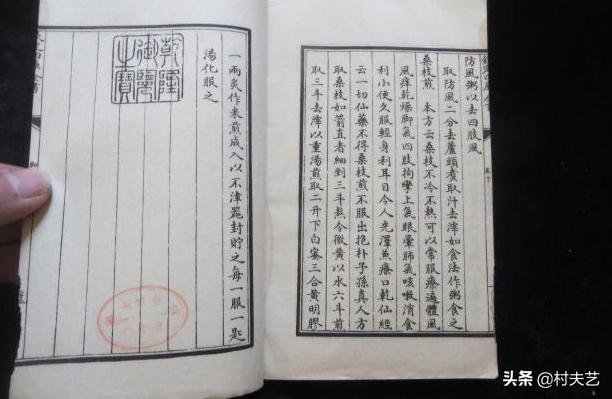 防風粥以去四肢風
取防風二分去蘆頭煑取汁去滓如食法作粥食之
桑枝煎　本方云桑枝不冷不熱可以常服療遍體風
風痒乾燥脚氣四肢拘攣上氣眼暈肺氣咳嗽消食
利小便久服輕身利耳目令人光澤兼療口乾仙經
云一切仙藥不得桑枝煎不服出抱朴子孫真人方
取桑枝如箭直者細剉三斗熬令微黄以水六斗煎
取三斗去滓以重湯煎取二升下白蜜三合黄明膠
一兩炙作末煎成入以不津器封貯之每一服一匙
湯化服之
乾隆御覽之寶
头条 @村夫艺